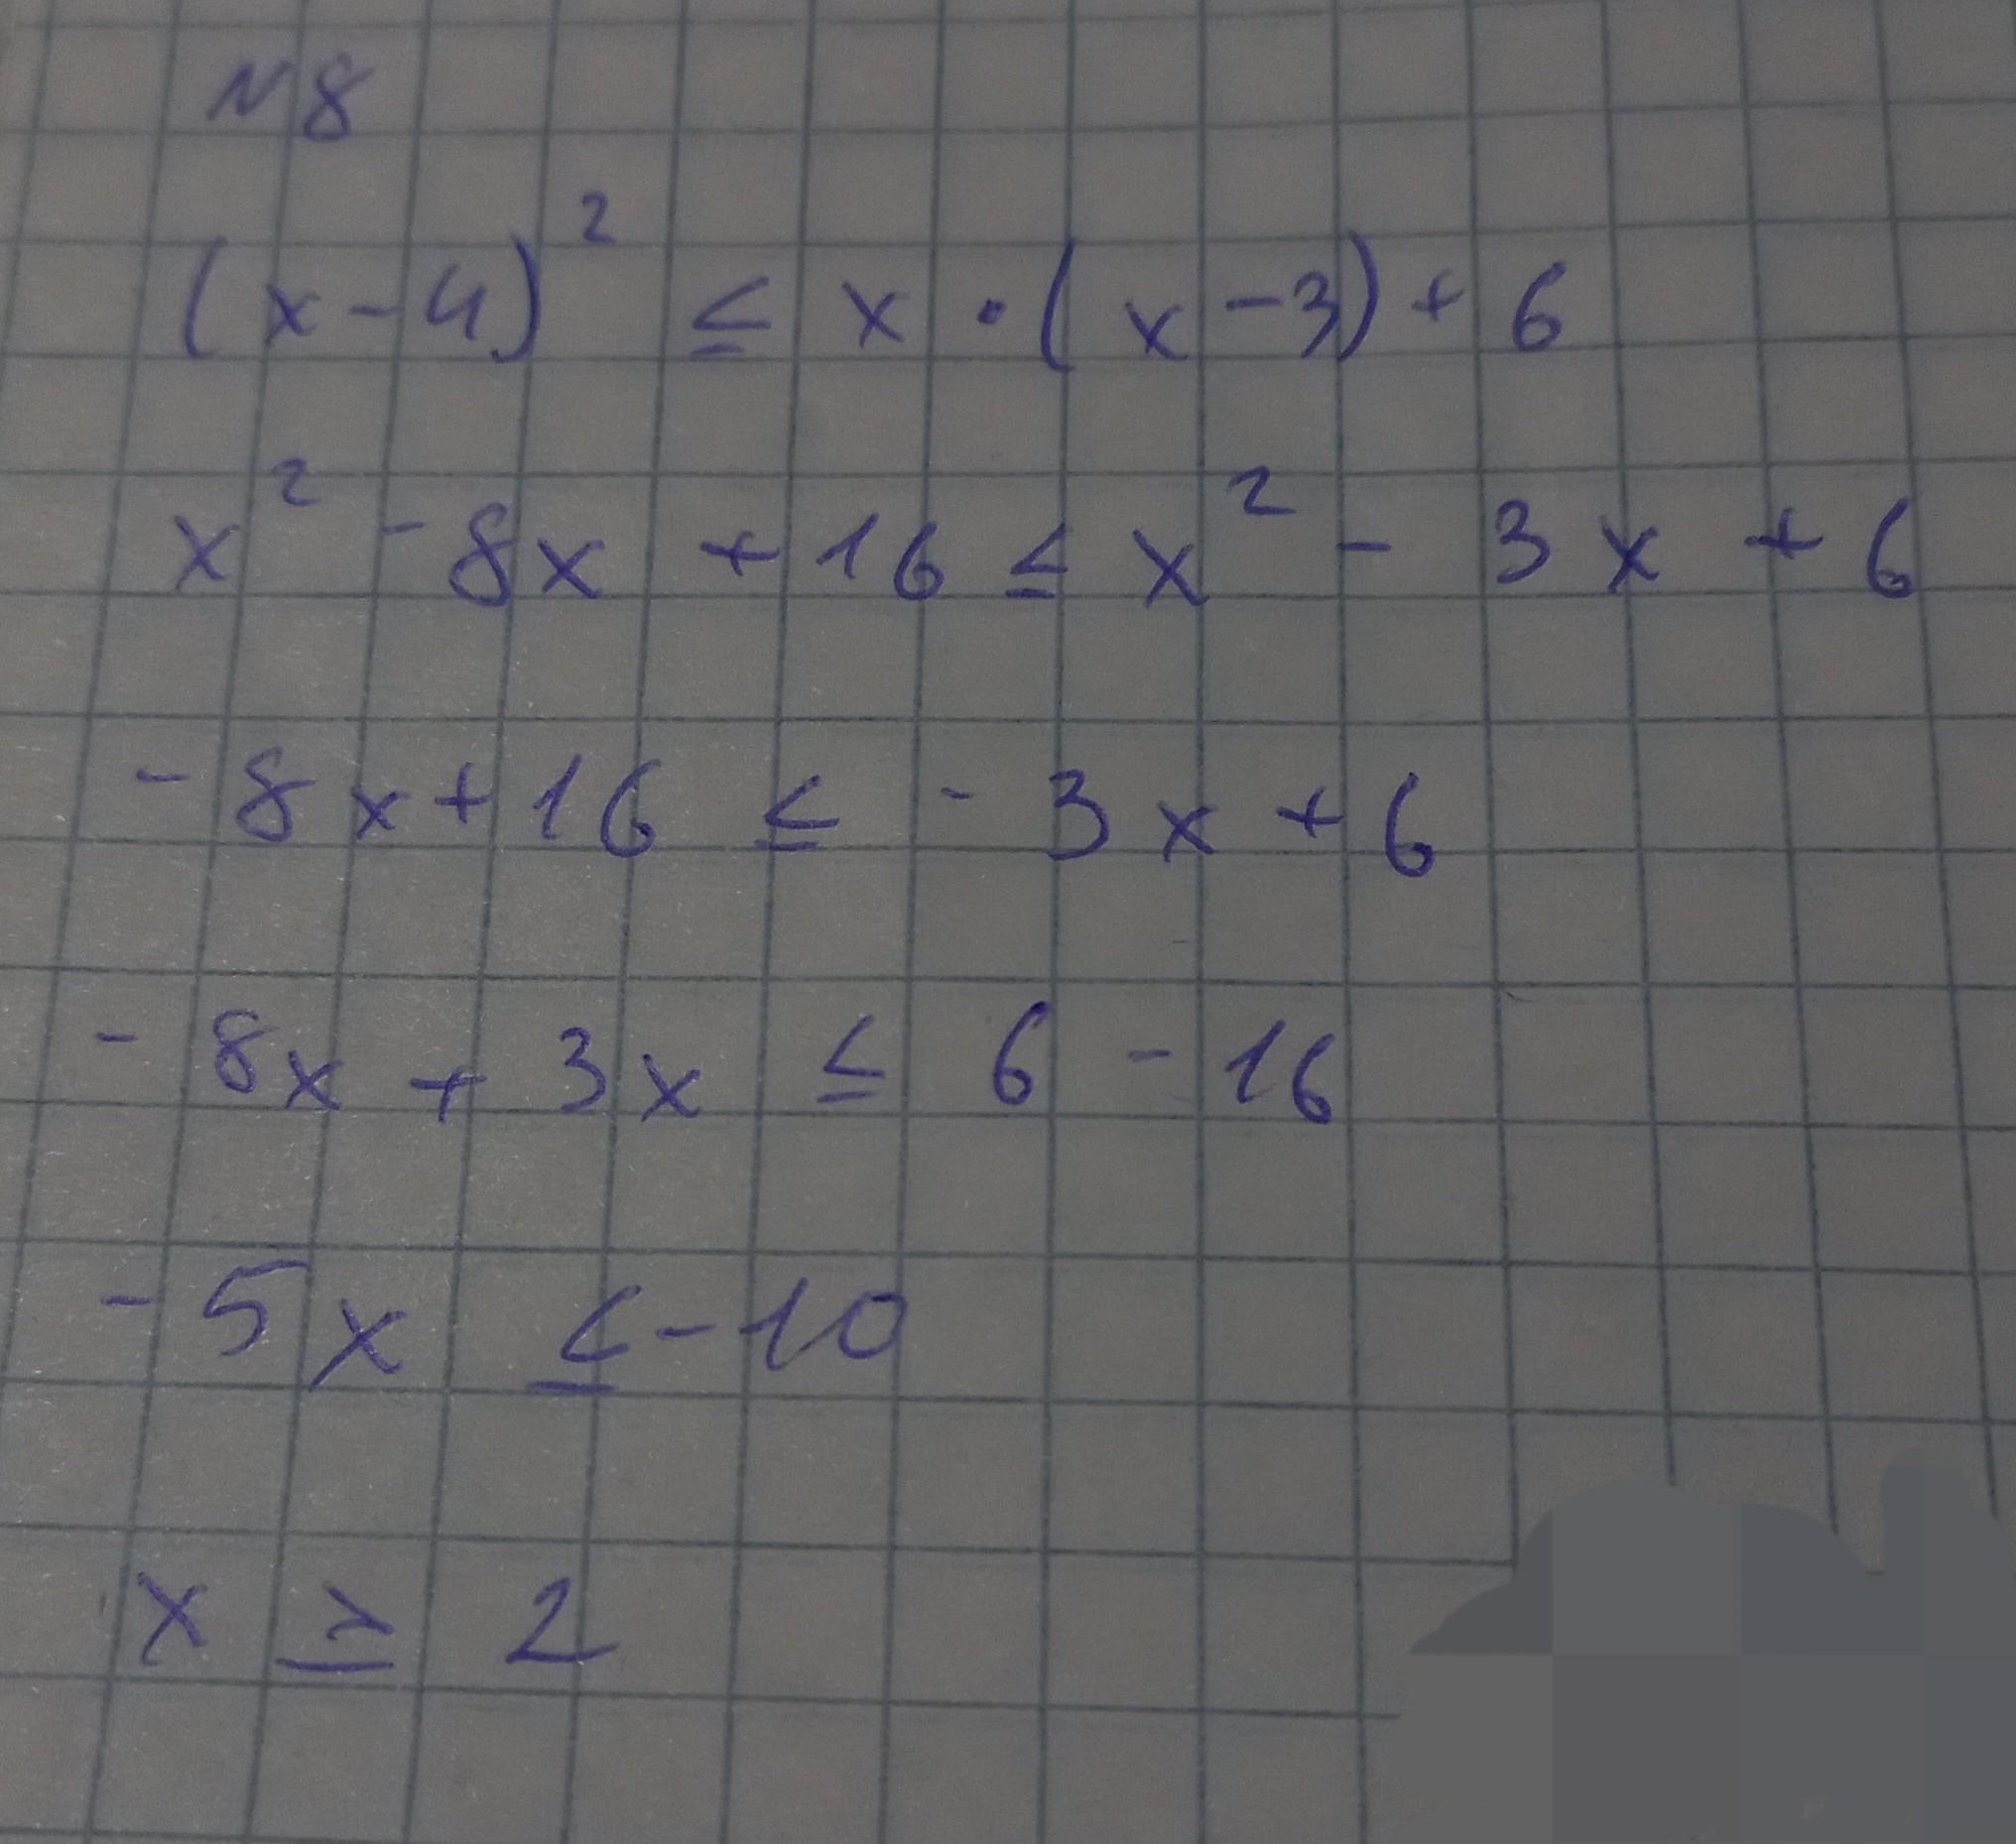 N8
(x-4)² ≤ x · (x-3) + 6
x² - 8x + 16 ≤ x² - 3x + 6
- 8x + 16 ≤ - 3x + 6
- 8x + 3x ≤ 6 - 16
- 5x ≤ -10
x ≥ 2